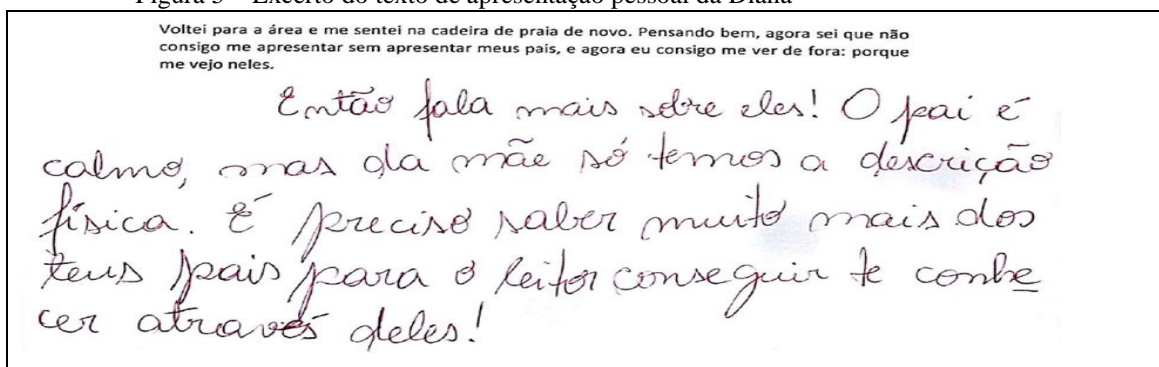 Figura 3 – Excerto do texto de apresentação pessoal da Diana
Voltei para a área e me sentei na cadeira de praia de novo. Pensando bem, agora sei que não
consigo me apresentar sem apresentar meus pais, e agora eu consigo me ver de fora: porque
me vejo neles.
Então fala mais sobre eles! O pai é
calmo, mas da mãe só temos a descrição
física. É preciso saber muito mais dos
teus pais para o leitor conseguir te conhe
cer através deles!